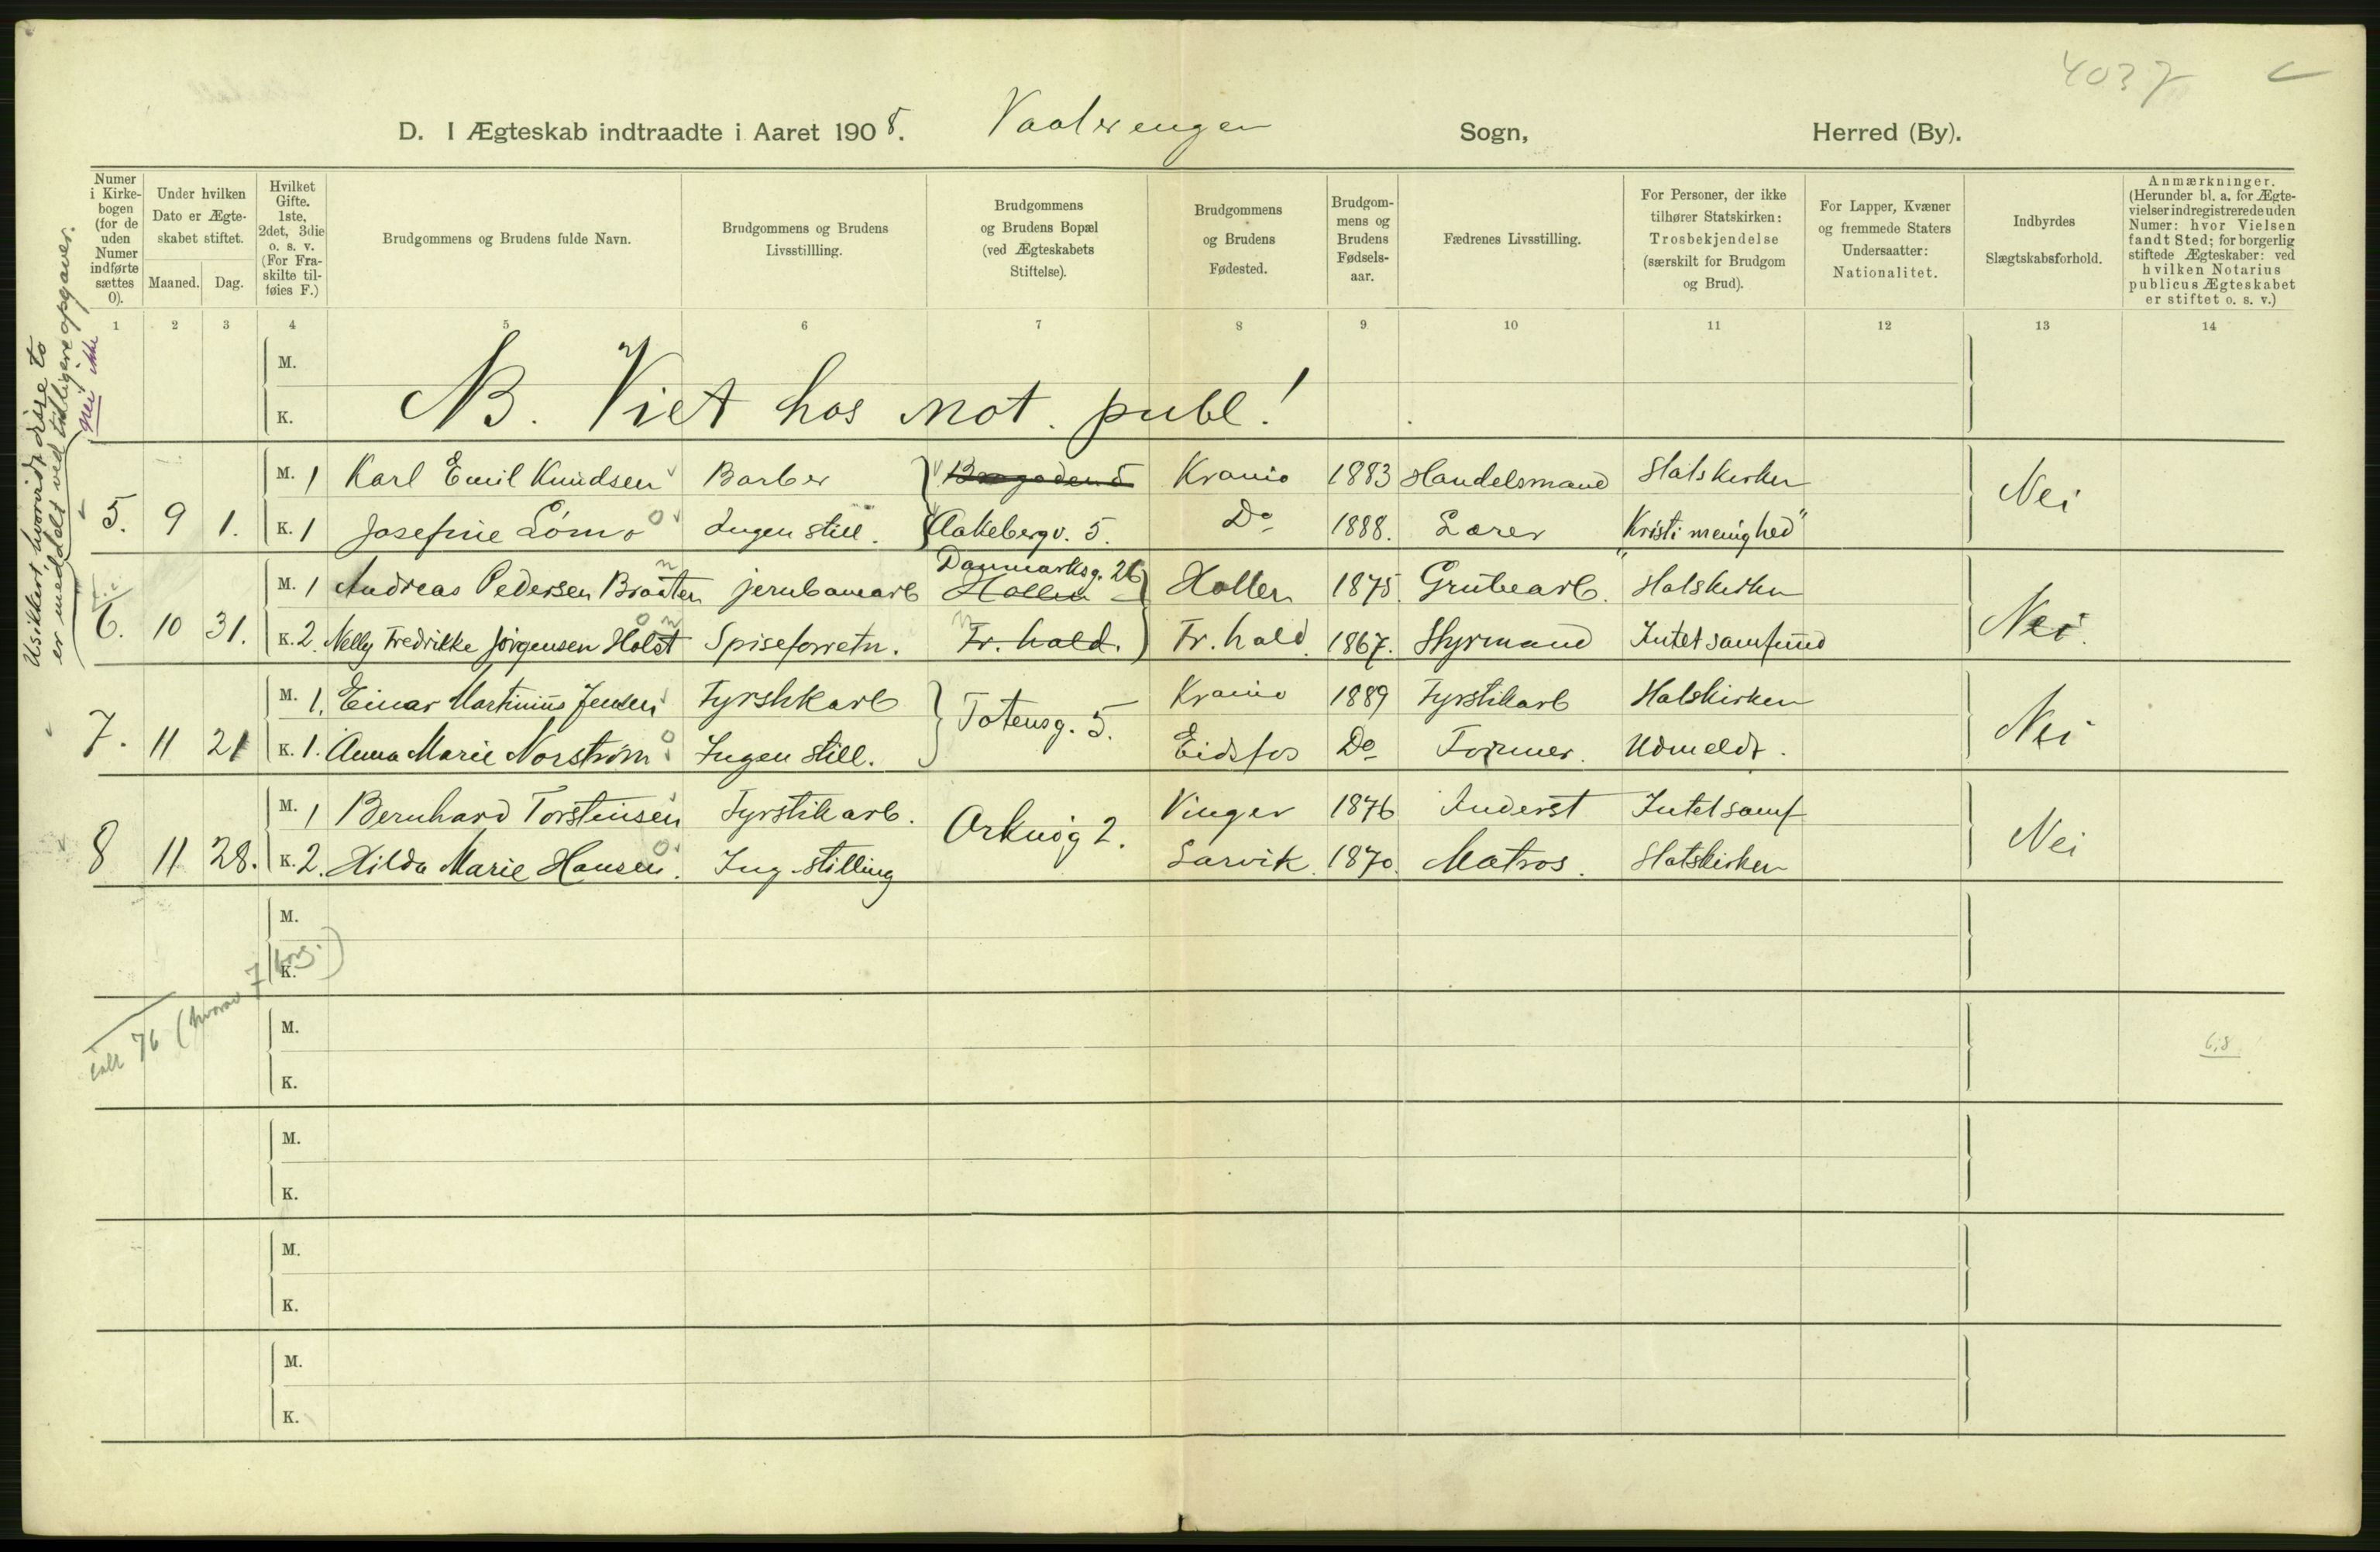 4037
D. I Ægteskab indtraadte i Aaret 1908. Vaalerengen Sogn, Herred (By).
Numer i Kirkebogen (for de uden Numer indførte sættes 0).
Under hvilken Dato er Ægteskabet stiftet.
Maaned. Dag.
Hvilket Gifte. 1ste, 2det, 3die o. s. v. (For Fraskilte tilføies F.)
Brudgommens og Brudens fulde Navn.
Brudgommens og Brudens Livsstillling.
Brudgommens og Brudens Bopæl (ved Ægteskabets Stiftelse).
Brudgommens og Brudens Fødested.
Brudgommens og Brudens Fødselsaar.
Fædrenes Livsstilling.
For Personer, der ikke tilhører Statskirken: Trosbekjendelse (særskilt for Brudgom og Brud).
For Lapper, Kvæner og fremmede Staters Undersaatter: Nationalitet.
Indbyrdes Slægtskabsforhold.
Anmærkninger. (Herunder bl. a. for Ægtevielser indregistrerede uden Numer: hvor Vielsen fandt Sted; for borgerlig stiftede Ægteskaber: ved hvilken Notarius publicus Ægteskabet er stiftet o. s. v.)
1 2 3 4 5 6 7 8 9 10 11 12 13 14
Usikkert, hvorvidt disse to
er meddelt ved tidligere opgaver.
nei ikke
M.
K.
NB. Viet hos not. publ!
5. 9 1. M. 1 Karl Emil Knudsen Barber Krania 1883 Handelsmand Statskirken Nei
K. 1 Josefine Lömo Ingen still. Aakebergv. 5. Do 1888. Lærer "Kristi menighed"
6. 10 31. M. 1 Andreas Pedersen Braaten jernbanearb Danmarksg. 26 Hollen Hollen 1875 Grubearb. Statskirken Nei.
K. 2. Nelly Fredrikke Jörgensen Holst Spiseforretn. Fr. hald. Fr. hald. 1867. Styrmand Intet samfund
7. 11 21 M. 1. Einar Martinius Jensen Fyrstikarb Totensg. 5. Krania 1889 Fyrstikarb Statskirken Nei
K. 1. Anna Marie Norström Ingen still. Eidsfos Do Former. Udmeldt.
8 11 28. M. 1 Bernhard Torstensen Fyrstikarb. Orknög 2. Vinger 1876 Inderst Intet samf Nei
K. 2. Hilda Marie Hansen. Ing. stilling Larvik. 1870. Matros. Statskirken
M.
K.
ialt 76 (hvorav 7 borg.)
M.
K.
6,8
M.
K.
M.
K.
M.
K.